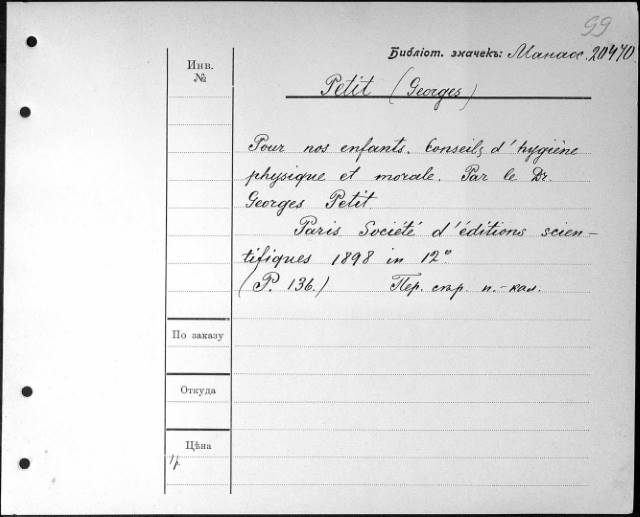 99
Библіот. значекъ: Манасс. 20470.
Инв.
№
Petit (Georges)
Pour nos enfants. Conseils d'hygiène
physique et morale. Par le Dr.
Georges Petit
Paris Société d'éditions scien-
tifiques 1898 in 12°
(P. 136.) Пер. скр. п.-кол.
По заказу
Откуда
Цѣна
1 р